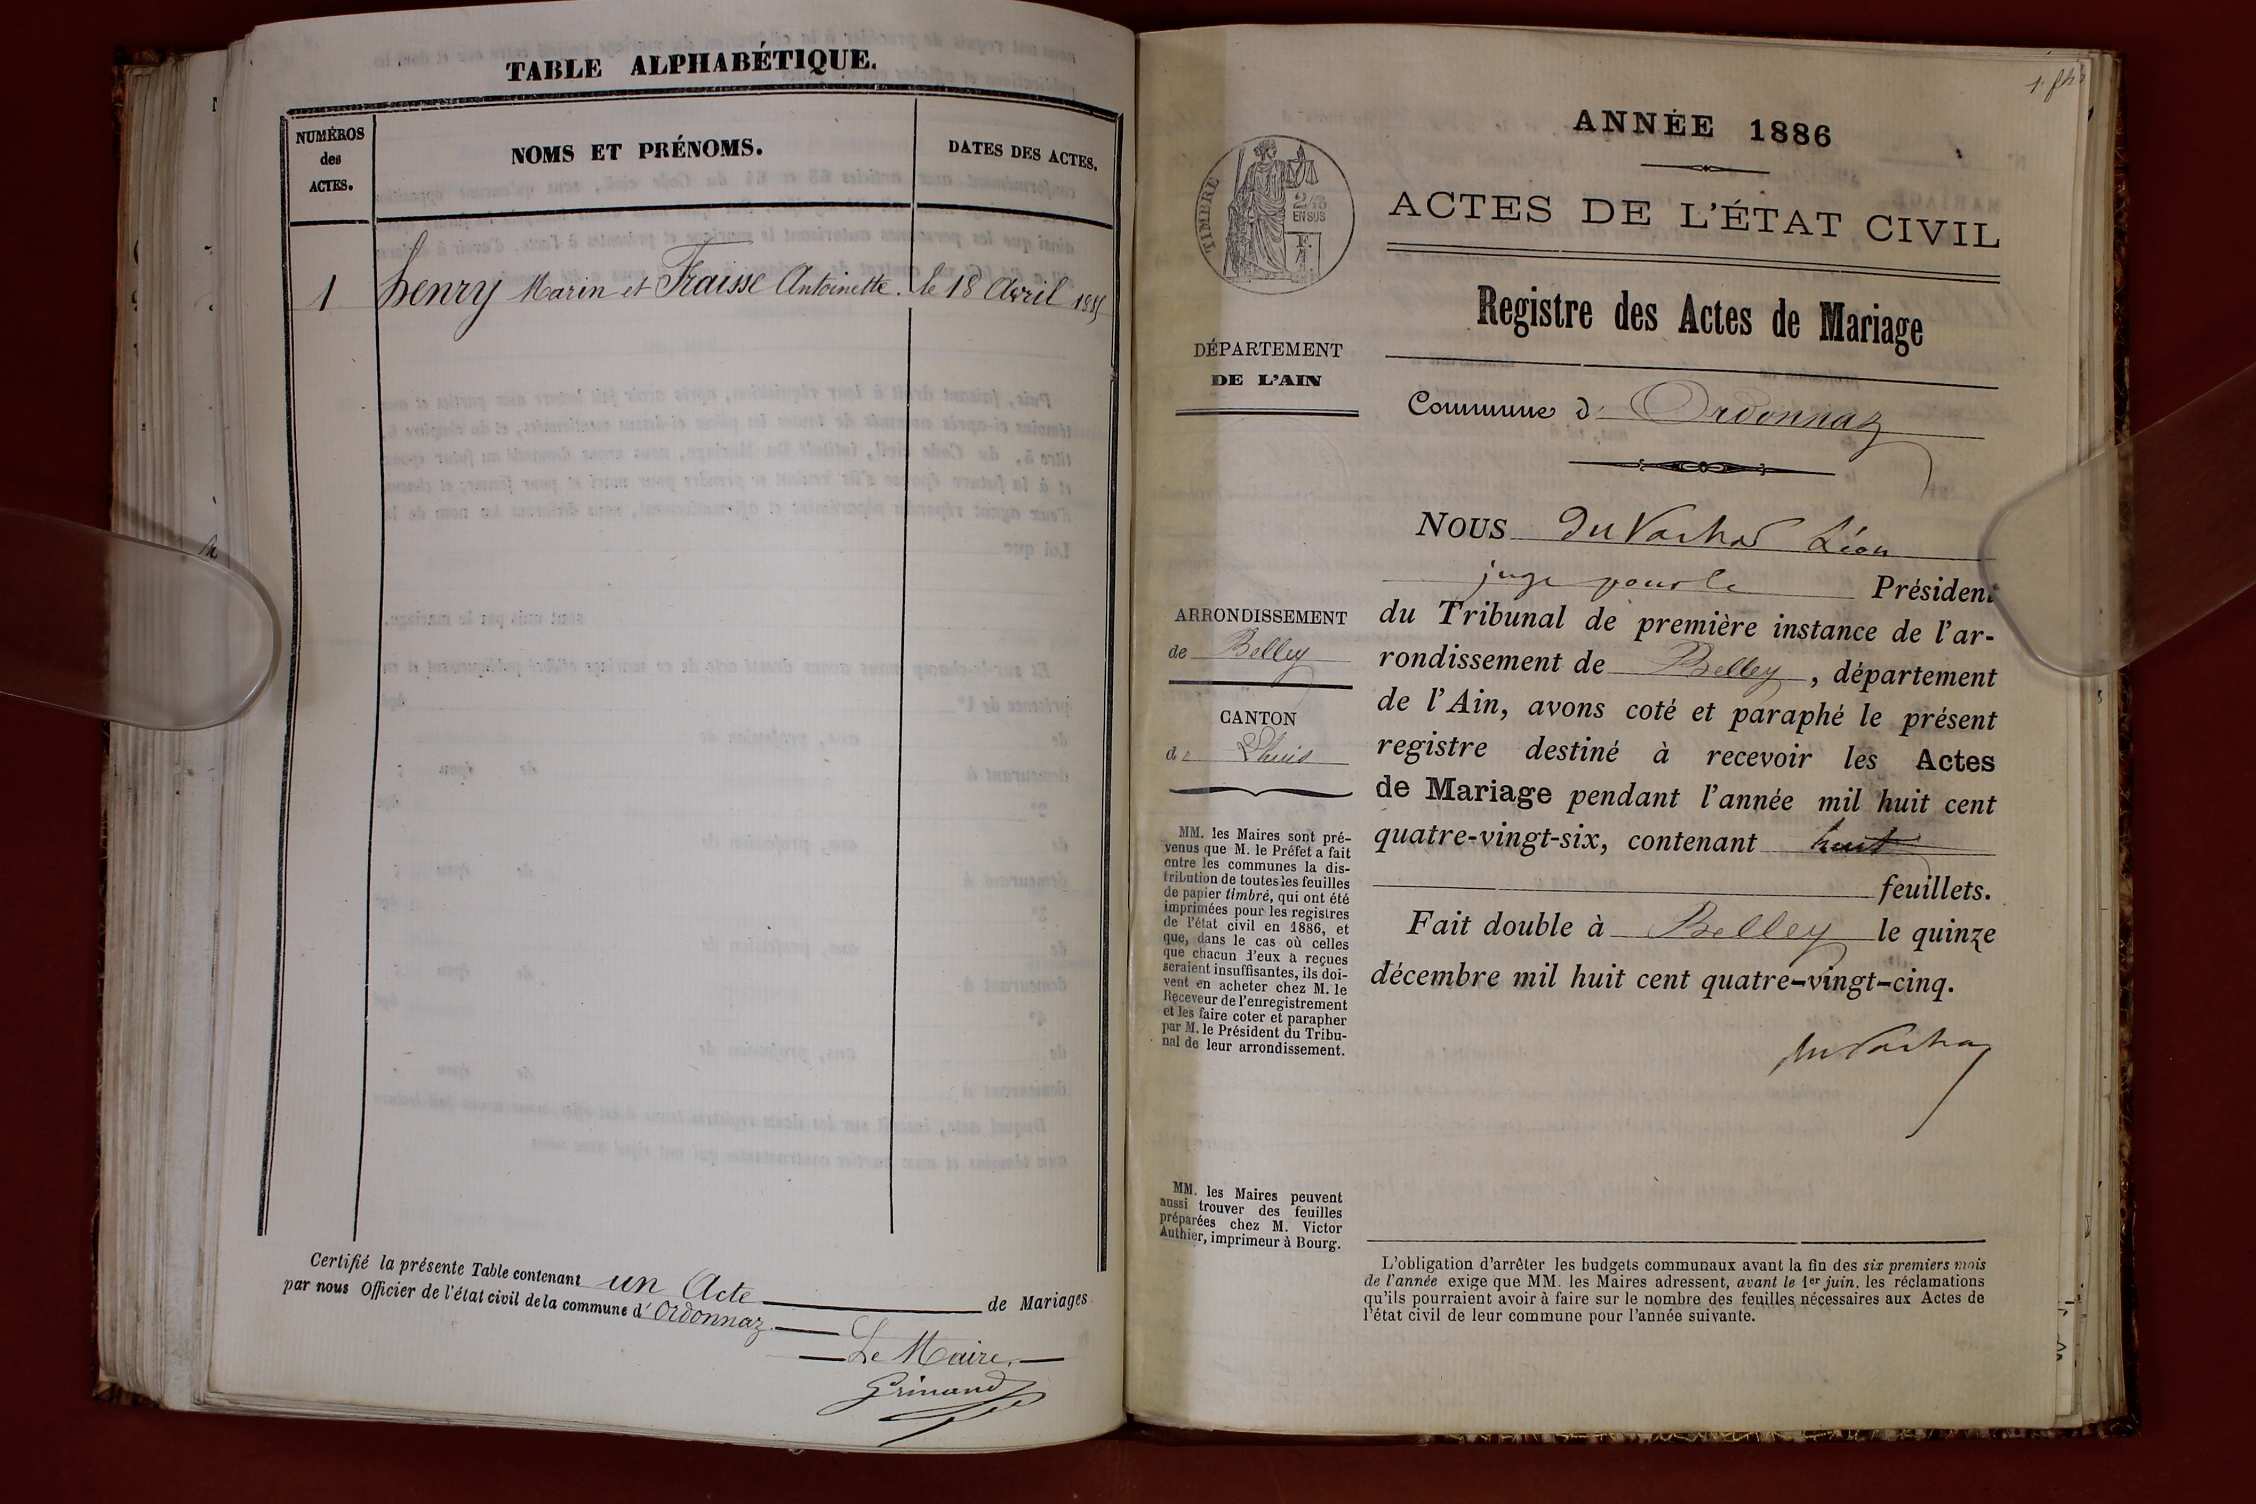 TABLE ALPHABÉTIQUE.
NUMÉROS
des
ACTES.
NOMS ET PRÉNOMS.
DATES DES ACTES.
1 henry Marin et Fraisse Antoinette. le 18 Avril
Certifié la présente Table contenant un Acte de Mariages
par nous Officier de l'état civil de la commune d' Ordonnaz
Le Maire.
Grinand
ANNÉE 1886
ACTES DE L'ÉTAT CIVIL
Registre des Actes de Mariage
Commune d' Ordonnaz
TIMBRE
2/10
EN SUS
DÉPARTEMENT
DE L'AIN
ARRONDISSEMENT
de Belley
CANTON
de Lhuis
MM. les Maires sont pré-
venus que M. le Préfet a fait
entre les communes la dis-
tribution de toutes les feuilles
de papier timbré, qui ont été
imprimées pour les registres
de l'état civil en 1886, et
que, dans le cas où celles
que chacun d'eux a reçues
seraient insuffisantes, ils doi-
vent en acheter chez M. le
Receveur de l'enregistrement
et les faire coter et parapher
par M. le Président du Tribu-
nal de leur arrondissement.
MM. les Maires peuvent
aussi trouver des feuilles
préparées chez M. Victor
Authier, imprimeur à Bourg.
NOUS Léon
juge pour le Président
du Tribunal de première instance de l'ar-
rondissement de Belley, département
de l'Ain, avons coté et paraphé le présent
registre destiné à recevoir les Actes
de Mariage pendant l'année mil huit cent
quatre-vingt-six, contenant huit
feuillets.
Fait double à Belley le quinze
décembre mil huit cent quatre-vingt-cinq.
L'obligation d'arrêter les budgets communaux avant la fin des six premiers mois
de l'année exige que MM. les Maires adressent, avant le 1er juin, les réclamations
qu'ils pourraient avoir à faire sur le nombre des feuilles nécessaires aux Actes de
l'état civil de leur commune pour l'année suivante.